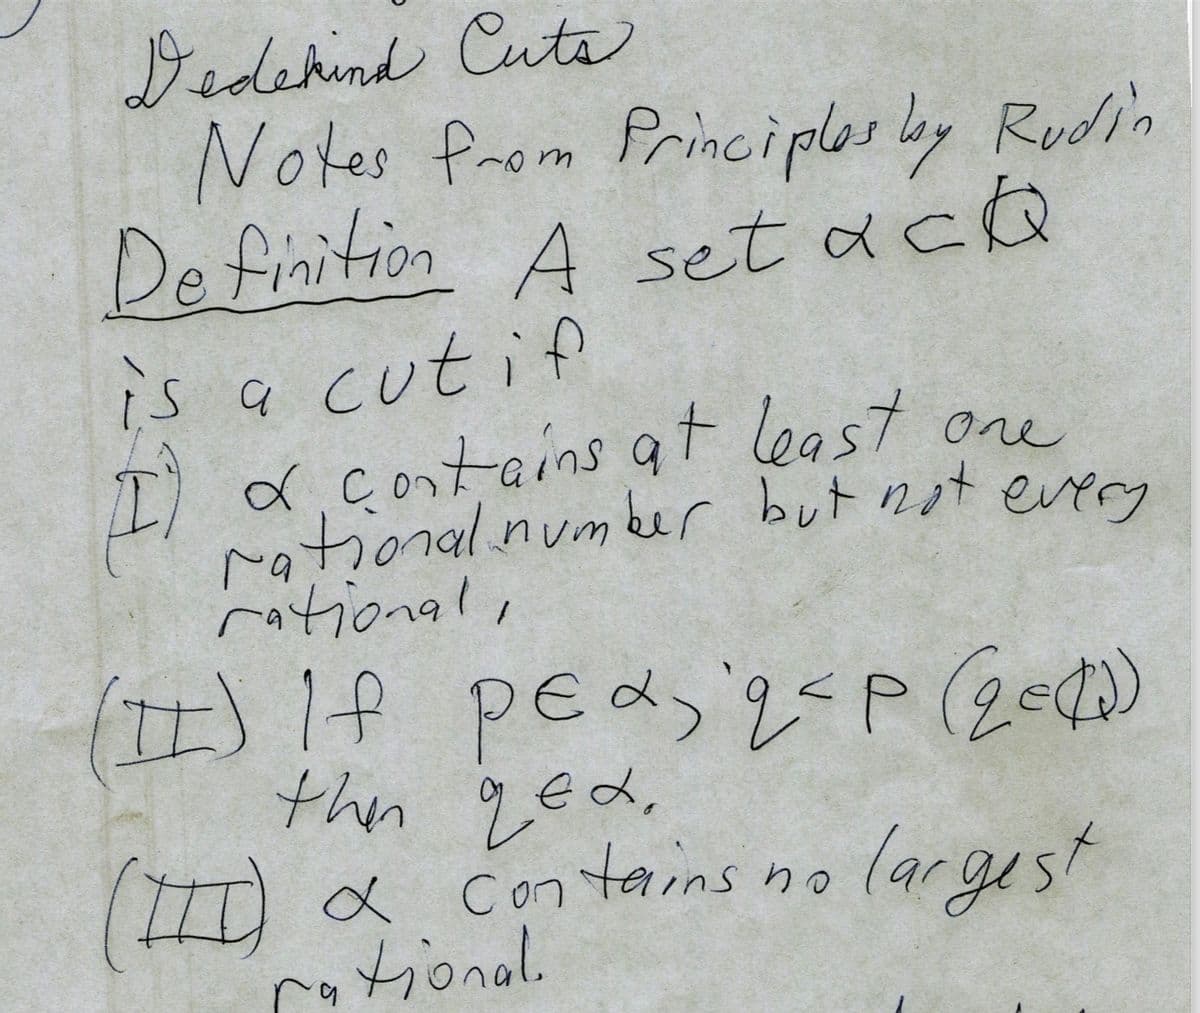 Dedekind Cuts
Notes from Principles by Rudin
Definition A set α ⊂ ℚ
is a cut if
(I) α contains at least one
rational number but not every
rational,
(II) If p ∈ α, q < p (q ∈ ℚ)
then q ∈ α.
(III) α contains no largest
rational.